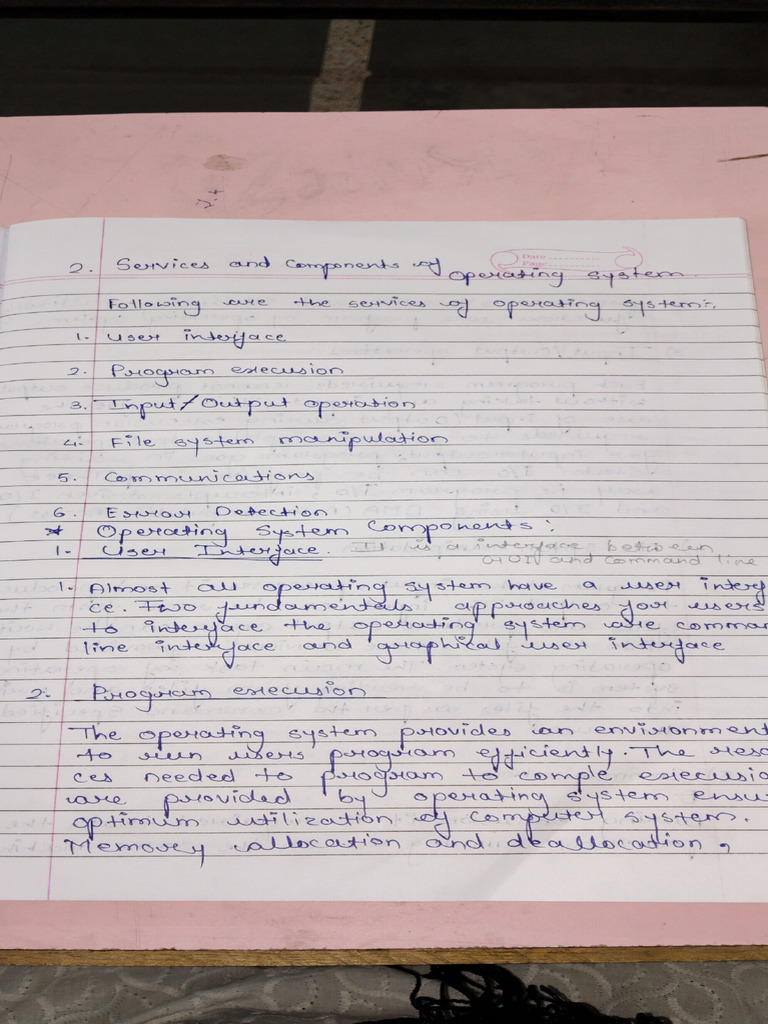 Date ............
Page ............
2. Services and components of operating system
Following are the services of operating system:-
1. User interface
2. Program execusion
3. Input/Output operation
4. File system manipulation
5. Communications
6. Error Detection
* Operating System Components:
1- User Interface. It is a interface between
GUI and command line
1. Almost all operating system have a user interf
ce. Two fundamentals approaches for users
to interface the operating system are comman
line interface and graphical user interface
2. Program execusion
The operating system provides an environment
to run users program efficiently. The reso
ces needed to program to comple execusio
are provided by operating system ensu
optimum utilization of computer system.
Memory allocation and deallocation,